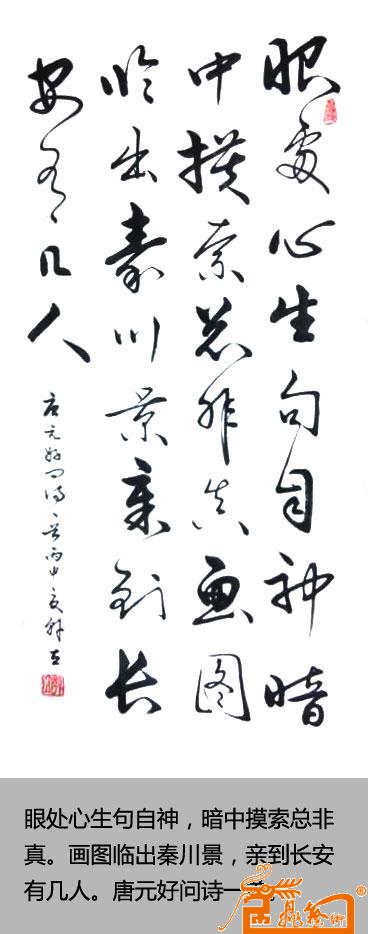 眼處心生句自神暗
中摸索总非真画图
临出秦川景亲到长
安有几人
唐元好问诗一首丙申
眼处心生句自神，暗中摸索总非
真。画图临出秦川景，亲到长安
有几人。唐元好问诗一首